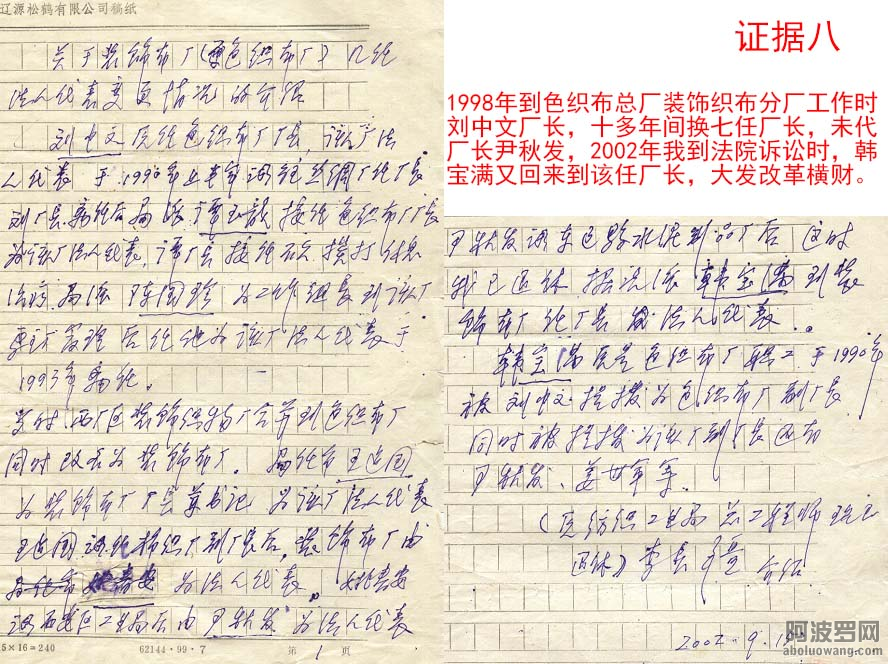 辽源松鹤有限公司稿纸
关于装饰布厂(色织布厂)几任
法人代表变更情况的介绍
刘中文原任色织布厂厂长,该厂法
人代表于1990年
刘厂长离任后局派谭玉龙接任色织布厂厂长
为该厂法人代表,谭厂长接任
治疗局派陈国珍为工作组长到该厂
后任他为该厂法人代表于
1993年离任。
装饰织物厂合并到色织布厂
同时改名为装饰布厂。局任命王选国
为装饰布厂厂长兼书记为该厂法人代表
王选国调任棉织厂副厂长后,装饰布厂由
为法人代表。
工业局后由尹秋发为法人代表
15×16=240
62144·99·7
第 1 页
证据八
1998年到色织布总厂装饰织布分厂工作时
刘中文厂长,十多年间换七任厂长,未代
厂长尹秋发,2002年我到法院诉讼时,韩
宝满又回来到该任厂长,大发改革横财。
尹秋发调东辽县水泥制品厂后这时
我已退休据说派韩宝满到装
饰布厂任厂长 法人代表..
韩宝满原是色织布厂职工于1990年
被刘中文提拔为色织布厂副厂长
同时被提拔为该厂副厂长还有
尹秋发、姜世军等.
(原纺织工业局总工程师现已
退休) 介绍
2002.9.19
阿波罗网
aboluowang.com